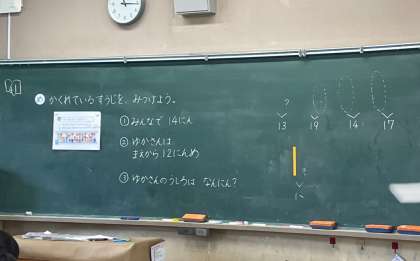 41
かくれているすうじを、みつけよう。
① みんなで 14にん
② ゆかさんは
まえから12にんめ
③ ゆかさんのうしろは なんにん?
?
13 19 14 17